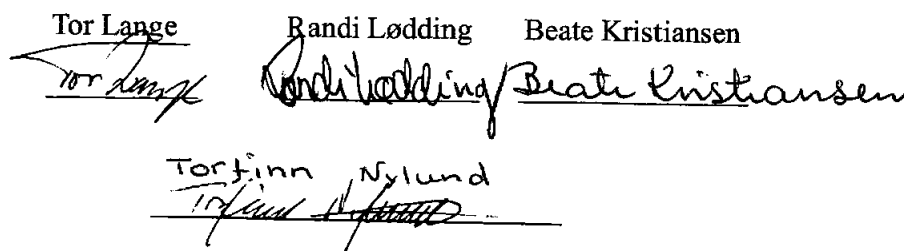 Tor Lange Randi Lødding Beate Kristiansen
Tor Lange Randi Lødding Beate Kristiansen
Torfinn Nylund
Torfinn Nylund